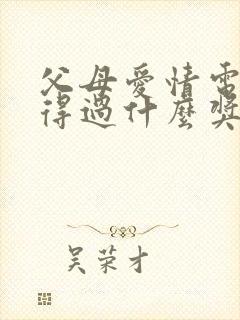 父母愛情電
得過什麼獎
吴荣才